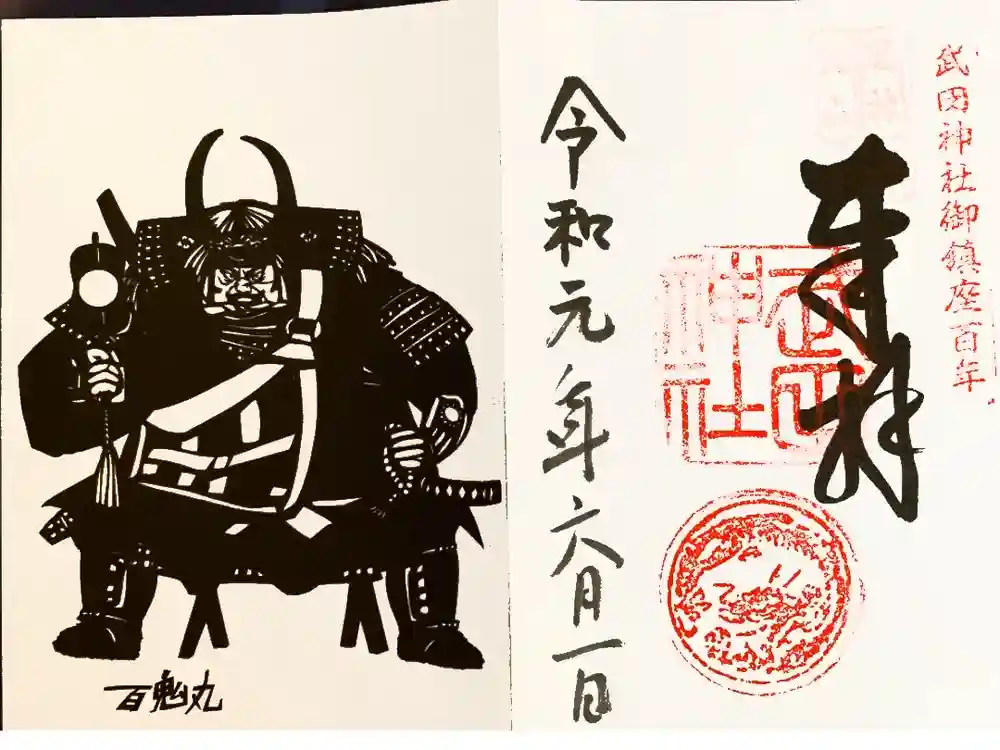 武田神社御鎮座百年
奉拝
武田神社
令和元年六月一日
百鬼丸